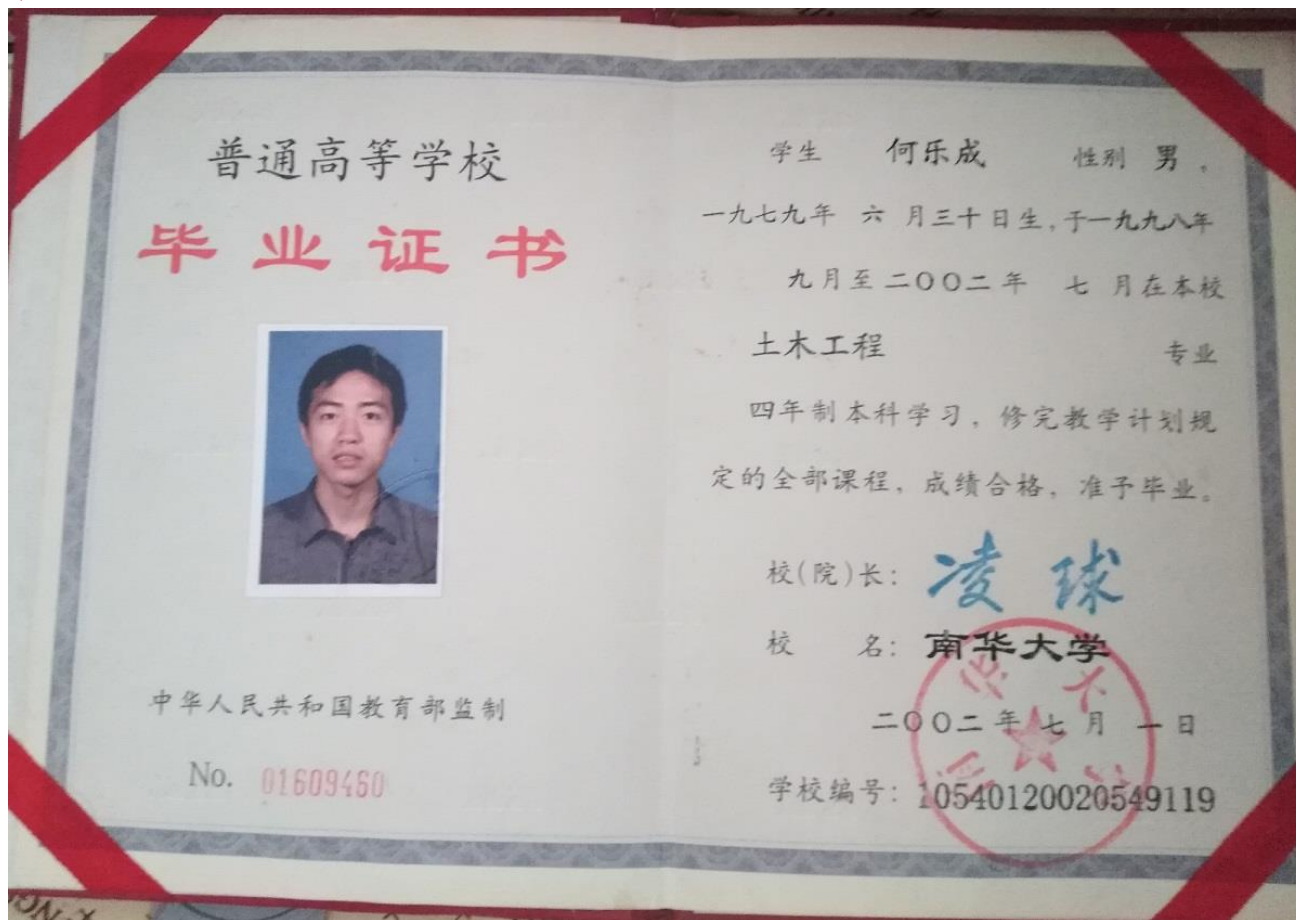 普通高等学校
毕业证书
中华人民共和国教育部监制
No. 01609460
学生 何乐成 性别 男 ,
一九七九年 六 月三十日生,于一九九八年
九月至二〇〇二年 七 月在本校
土木工程 专业
四年制本科学习,修完教学计划规
定的全部课程,成绩合格,准予毕业。
校(院)长: 凌球
校 名: 南华大学
二〇〇二年七月一日
学校编号: 10540120020549119